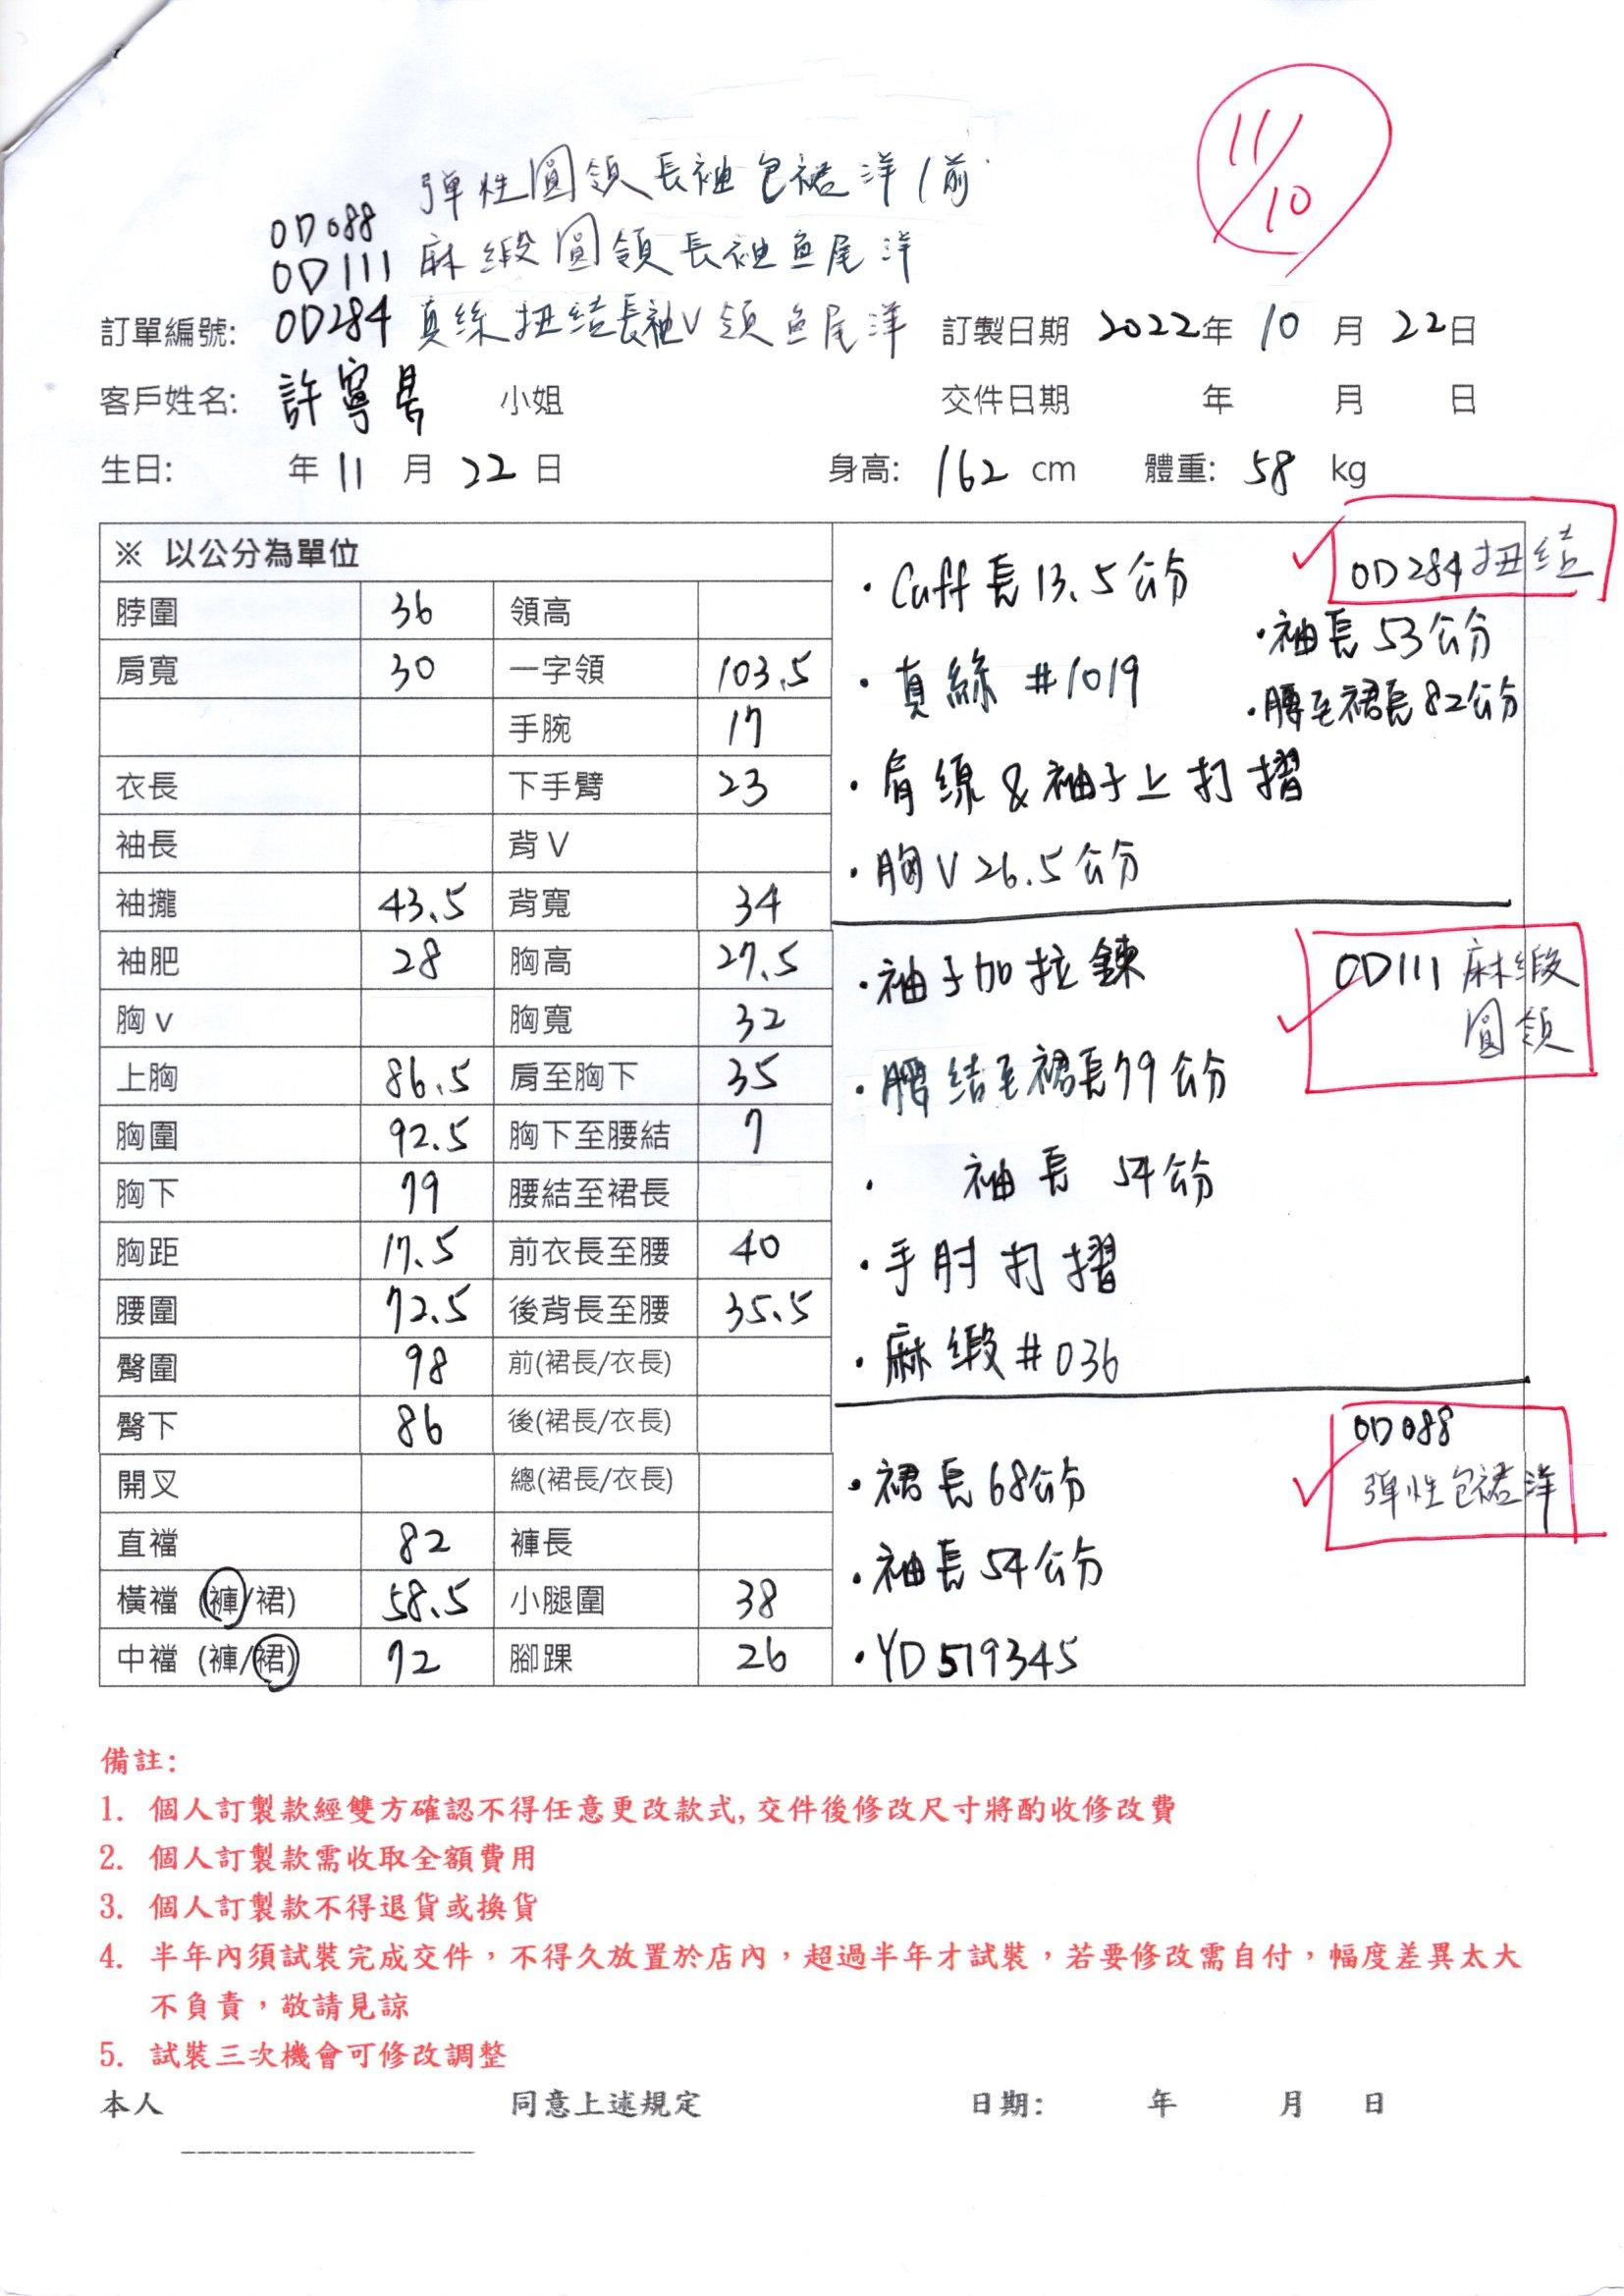 11/10
彈性圓領長袖包裙洋/前
OD088
OD111 麻緞圓領長袖魚尾洋
訂單編號: OD284 真絲扭結長袖V領魚尾洋 訂製日期 2022年 10 月 22日
客戶姓名: 許寧 小姐 交件日期 年 月 日
生日: 年 11 月 22 日 身高: 162 cm 體重: 58 kg
※ 以公分為單位
脖圍 36 領高
肩寬 30 一字領 103.5
手腕 17
衣長 下手臂 23
袖長 背V
袖攏 43.5 背寬 34
袖肥 28 胸高 27.5
胸v 胸寬 32
上胸 86.5 肩至胸下 35
胸圍 92.5 胸下至腰結 7
胸下 79 腰結至裙長
胸距 17.5 前衣長至腰 40
腰圍 72.5 後背長至腰 35.5
臀圍 98 前(裙長/衣長)
臀下 86 後(裙長/衣長)
開叉 總(裙長/衣長)
直襠 82 褲長
橫襠 (褲/裙) 58.5 小腿圍 38
中襠 (褲/裙) 72 腳踝 26
OD284扭結
·Cuff長13.5公分
·袖長53公分
·真絲#1019
·腰至裙長82公分
·肩線&袖子上打摺
·胸V26.5公分
OD111麻緞
圓領
·袖子加拉鍊
·腰結至裙長79公分
· 袖長 54公分
·手肘打摺
·麻緞#036
OD088
彈性包裙洋
·裙長68公分
·袖長54公分
·YD519345
備註:
1. 個人訂製款經雙方確認不得任意更改款式,交件後修改尺寸將酌收修改費
2. 個人訂製款需收取全額費用
3. 個人訂製款不得退貨或換貨
4. 半年內須試裝完成交件，不得久放置於店內，超過半年才試裝，若要修改需自付，幅度差異太大
不負責，敬請見諒
5. 試裝三次機會可修改調整
本人 同意上述規定 日期: 年 月 日